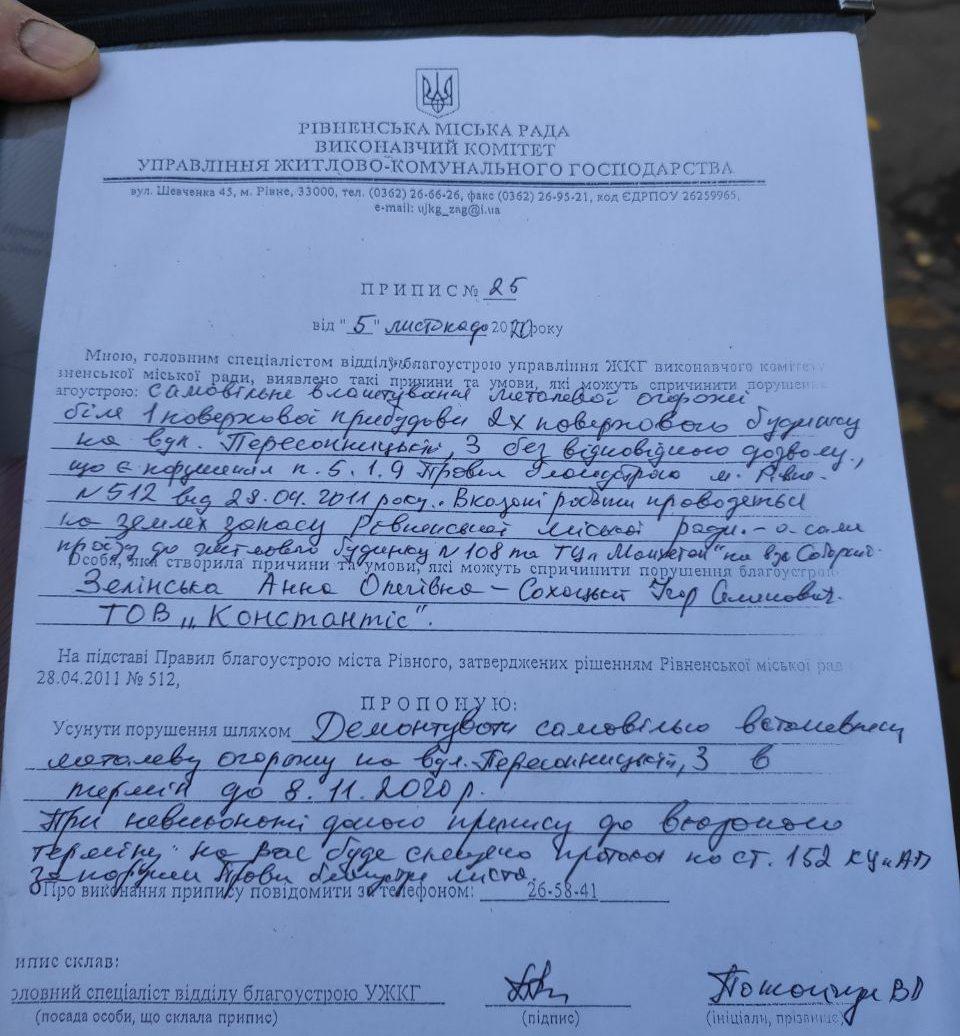 РІВНЕНСЬКА МІСЬКА РАДА
ВИКОНАВЧИЙ КОМІТЕТ
УПРАВЛІННЯ ЖИТЛОВО-КОМУНАЛЬНОГО ГОСПОДАРСТВА
вул. Шевченка 45, м. Рівне, 33000, тел. (0362) 26-66-26, факс (0362) 26-95-21, код ЄДРПОУ 26259965,
e-mail: ujkg_zag@i.ua
ПРИПИС № 25
від "5" листопада 2020 року
Мною, головним спеціалістом відділу благоустрою управління ЖКГ виконавчого комітету
зненської міської ради, виявлено такі причини та умови, які можуть спричинити порушення
агоустрою: самовільне влаштування металевої огорожі
біля 1 поверхової прибудови 2х поверхового будинку
на вул. Пересопницькій, 3 без відповідного дозволу,
що є порушення п. 5.1.9 Правил благоустрою м. Рівне
N 512 від 28.04.2011 року. Вказані роботи проводяться
на землях запасу Рівненської міської ради - а саме
проїзд до житлового будинку N 108 та ТЦ "Манхетен" на вул Соборній.
Особи, яка створила причини та умови, які можуть спричинити порушення благоустрою
Зелінська Анна Олегівна - Сохацький Ігор Семенович.
ТОВ "Константіс".
На підставі Правил благоустрою міста Рівного, затверджених рішенням Рівненської міської рад
28.04.2011 № 512,
ПРОПОНУЮ:
Усунути порушення шляхом Демонтувати самовільно встановлену
металеву огорожу на вул. Пересопницькій, 3 в
термін до 8.11.2020 р.
При невиконанні даного припису до вказаного
терміну на вас буде складено протокол по ст. 152 КУпАП
за порушен Правил благоустрою міста.
Про виконання припису повідомити за телефоном: 26-58-41
ипис склав:
оловний спеціаліст відділу благоустрою УЖКГ
(посада особи, що склала припис)
(підпис)
(ініціали, прізвище)